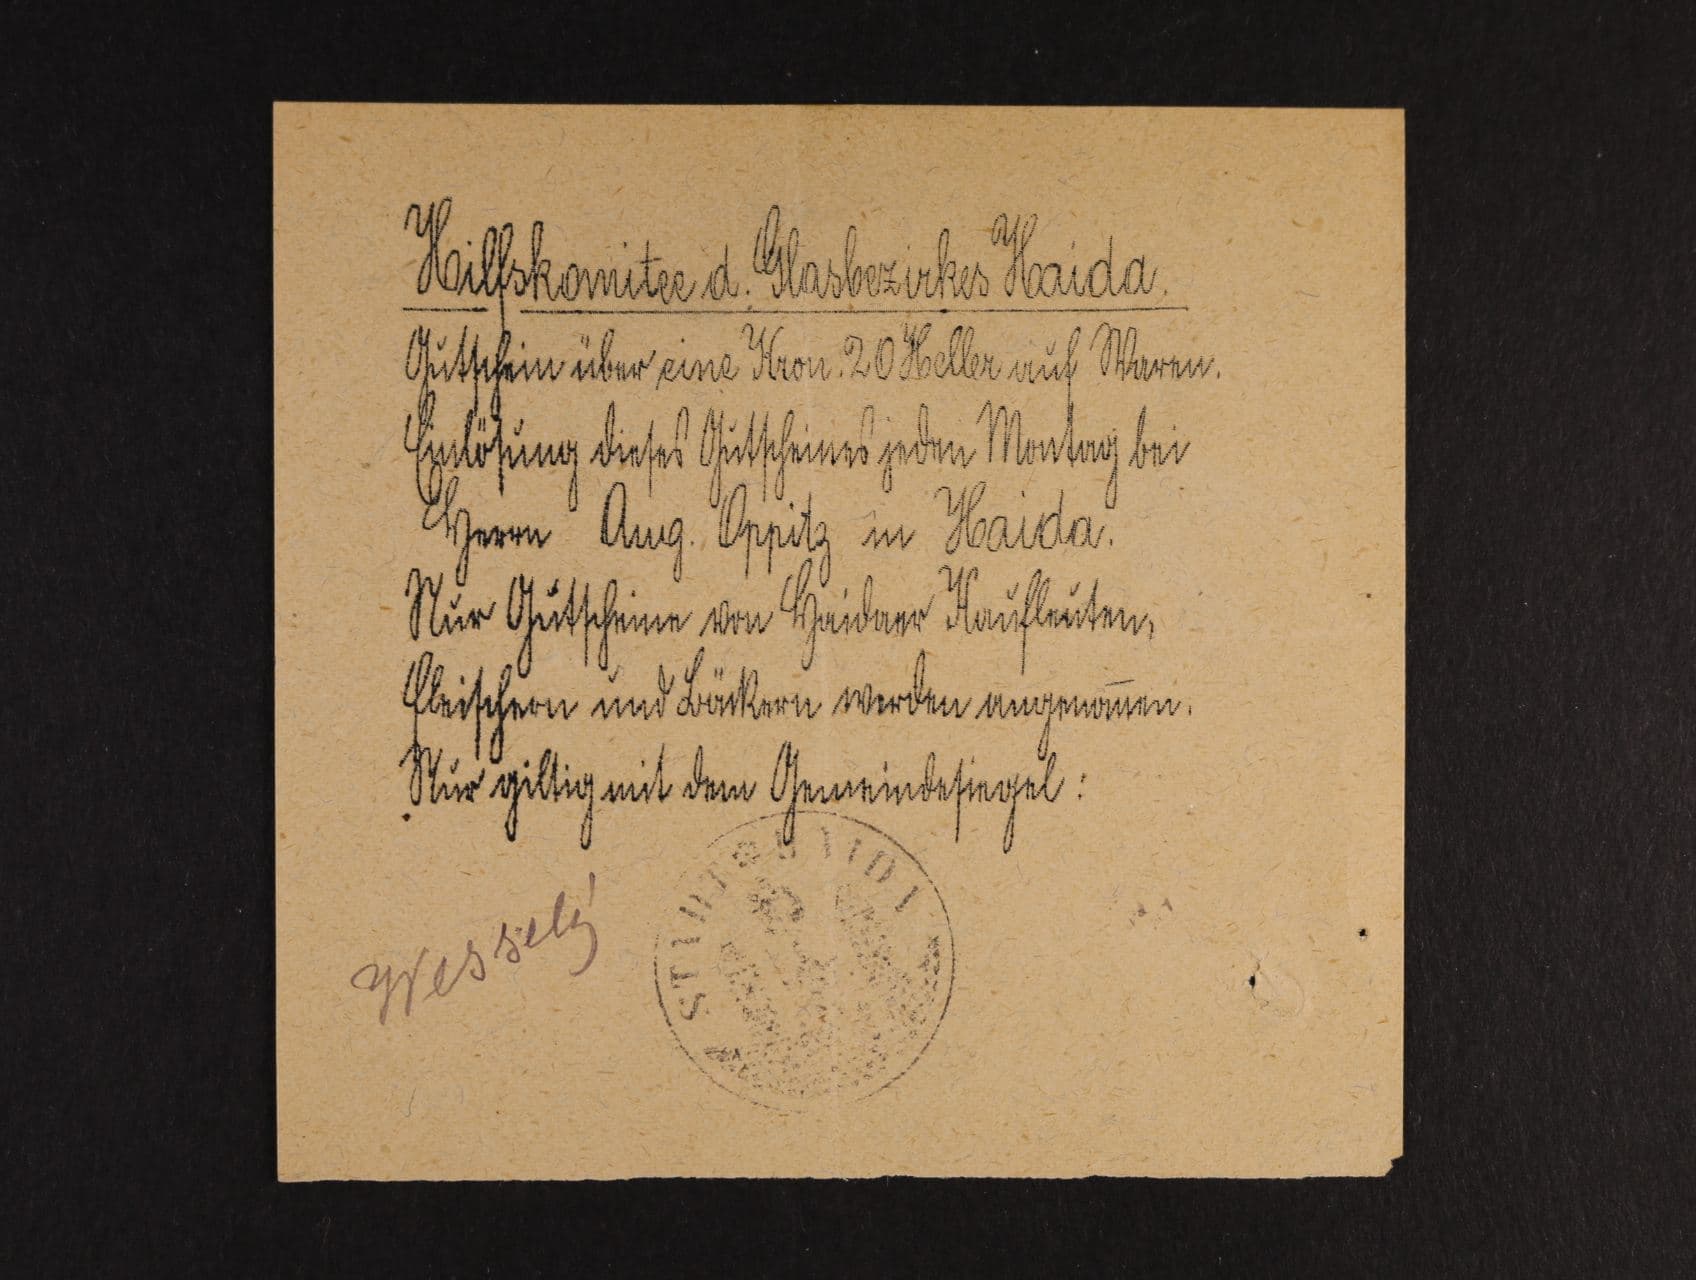 Hilfskomitee d. Glasbezirkes Haida.
Gutschein über eine Kron. 20 Heller auf Waren.
Einlösung dieses Gutscheines jeden Montag bei
Herrn Aug. Oppitz in Haida.
Nur Gutscheine von Haidaer Kaufleuten,
Fleischern und Bäckern werden angenom̄en.
Nur giltig mit dem Gemeindesiegel:
Wesselý